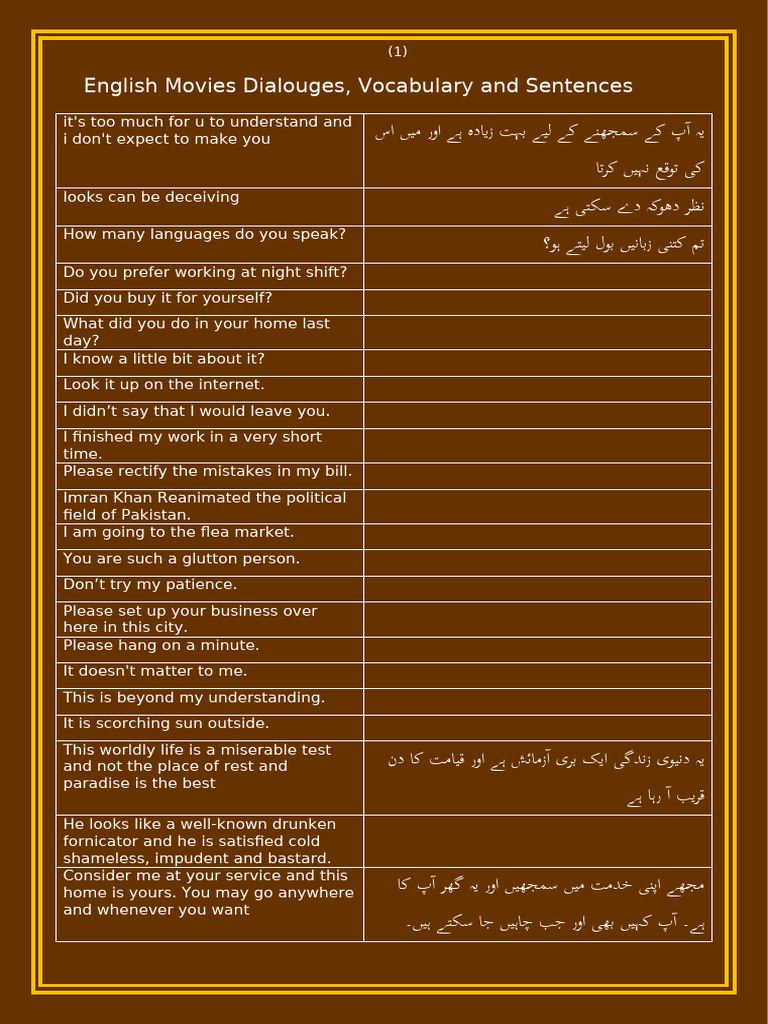 (1)
English Movies Dialouges, Vocabulary and Sentences
it's too much for u to understand and
i don't expect to make you
یہ آپ کے سمجھنے کے لیے بہت زیادہ ہے اور میں اس
کی توقع نہیں کرتا
looks can be deceiving
نظر دھوکہ دے سکتی ہے
How many languages do you speak?
تم کتنی زبانیں بول لیتے ہو؟
Do you prefer working at night shift?
Did you buy it for yourself?
What did you do in your home last
day?
I know a little bit about it?
Look it up on the internet.
I didn’t say that I would leave you.
I finished my work in a very short
time.
Please rectify the mistakes in my bill.
Imran Khan Reanimated the political
field of Pakistan.
I am going to the flea market.
You are such a glutton person.
Don’t try my patience.
Please set up your business over
here in this city.
Please hang on a minute.
It doesn't matter to me.
This is beyond my understanding.
It is scorching sun outside.
This worldly life is a miserable test
and not the place of rest and
paradise is the best
یہ دنیوی زندگی ایک بری آزمائش ہے اور قیامت کا دن
قریب آ رہا ہے
He looks like a well-known drunken
fornicator and he is satisfied cold
shameless, impudent and bastard.
Consider me at your service and this
home is yours. You may go anywhere
and whenever you want
مجھے اپنی خدمت میں سمجھیں اور یہ گھر آپ کا
ہے۔ آپ کہیں بھی اور جب چاہیں جا سکتے ہیں۔